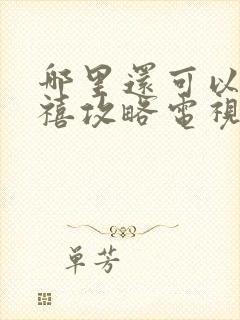 哪里還可以
禧攻略電視
单芳